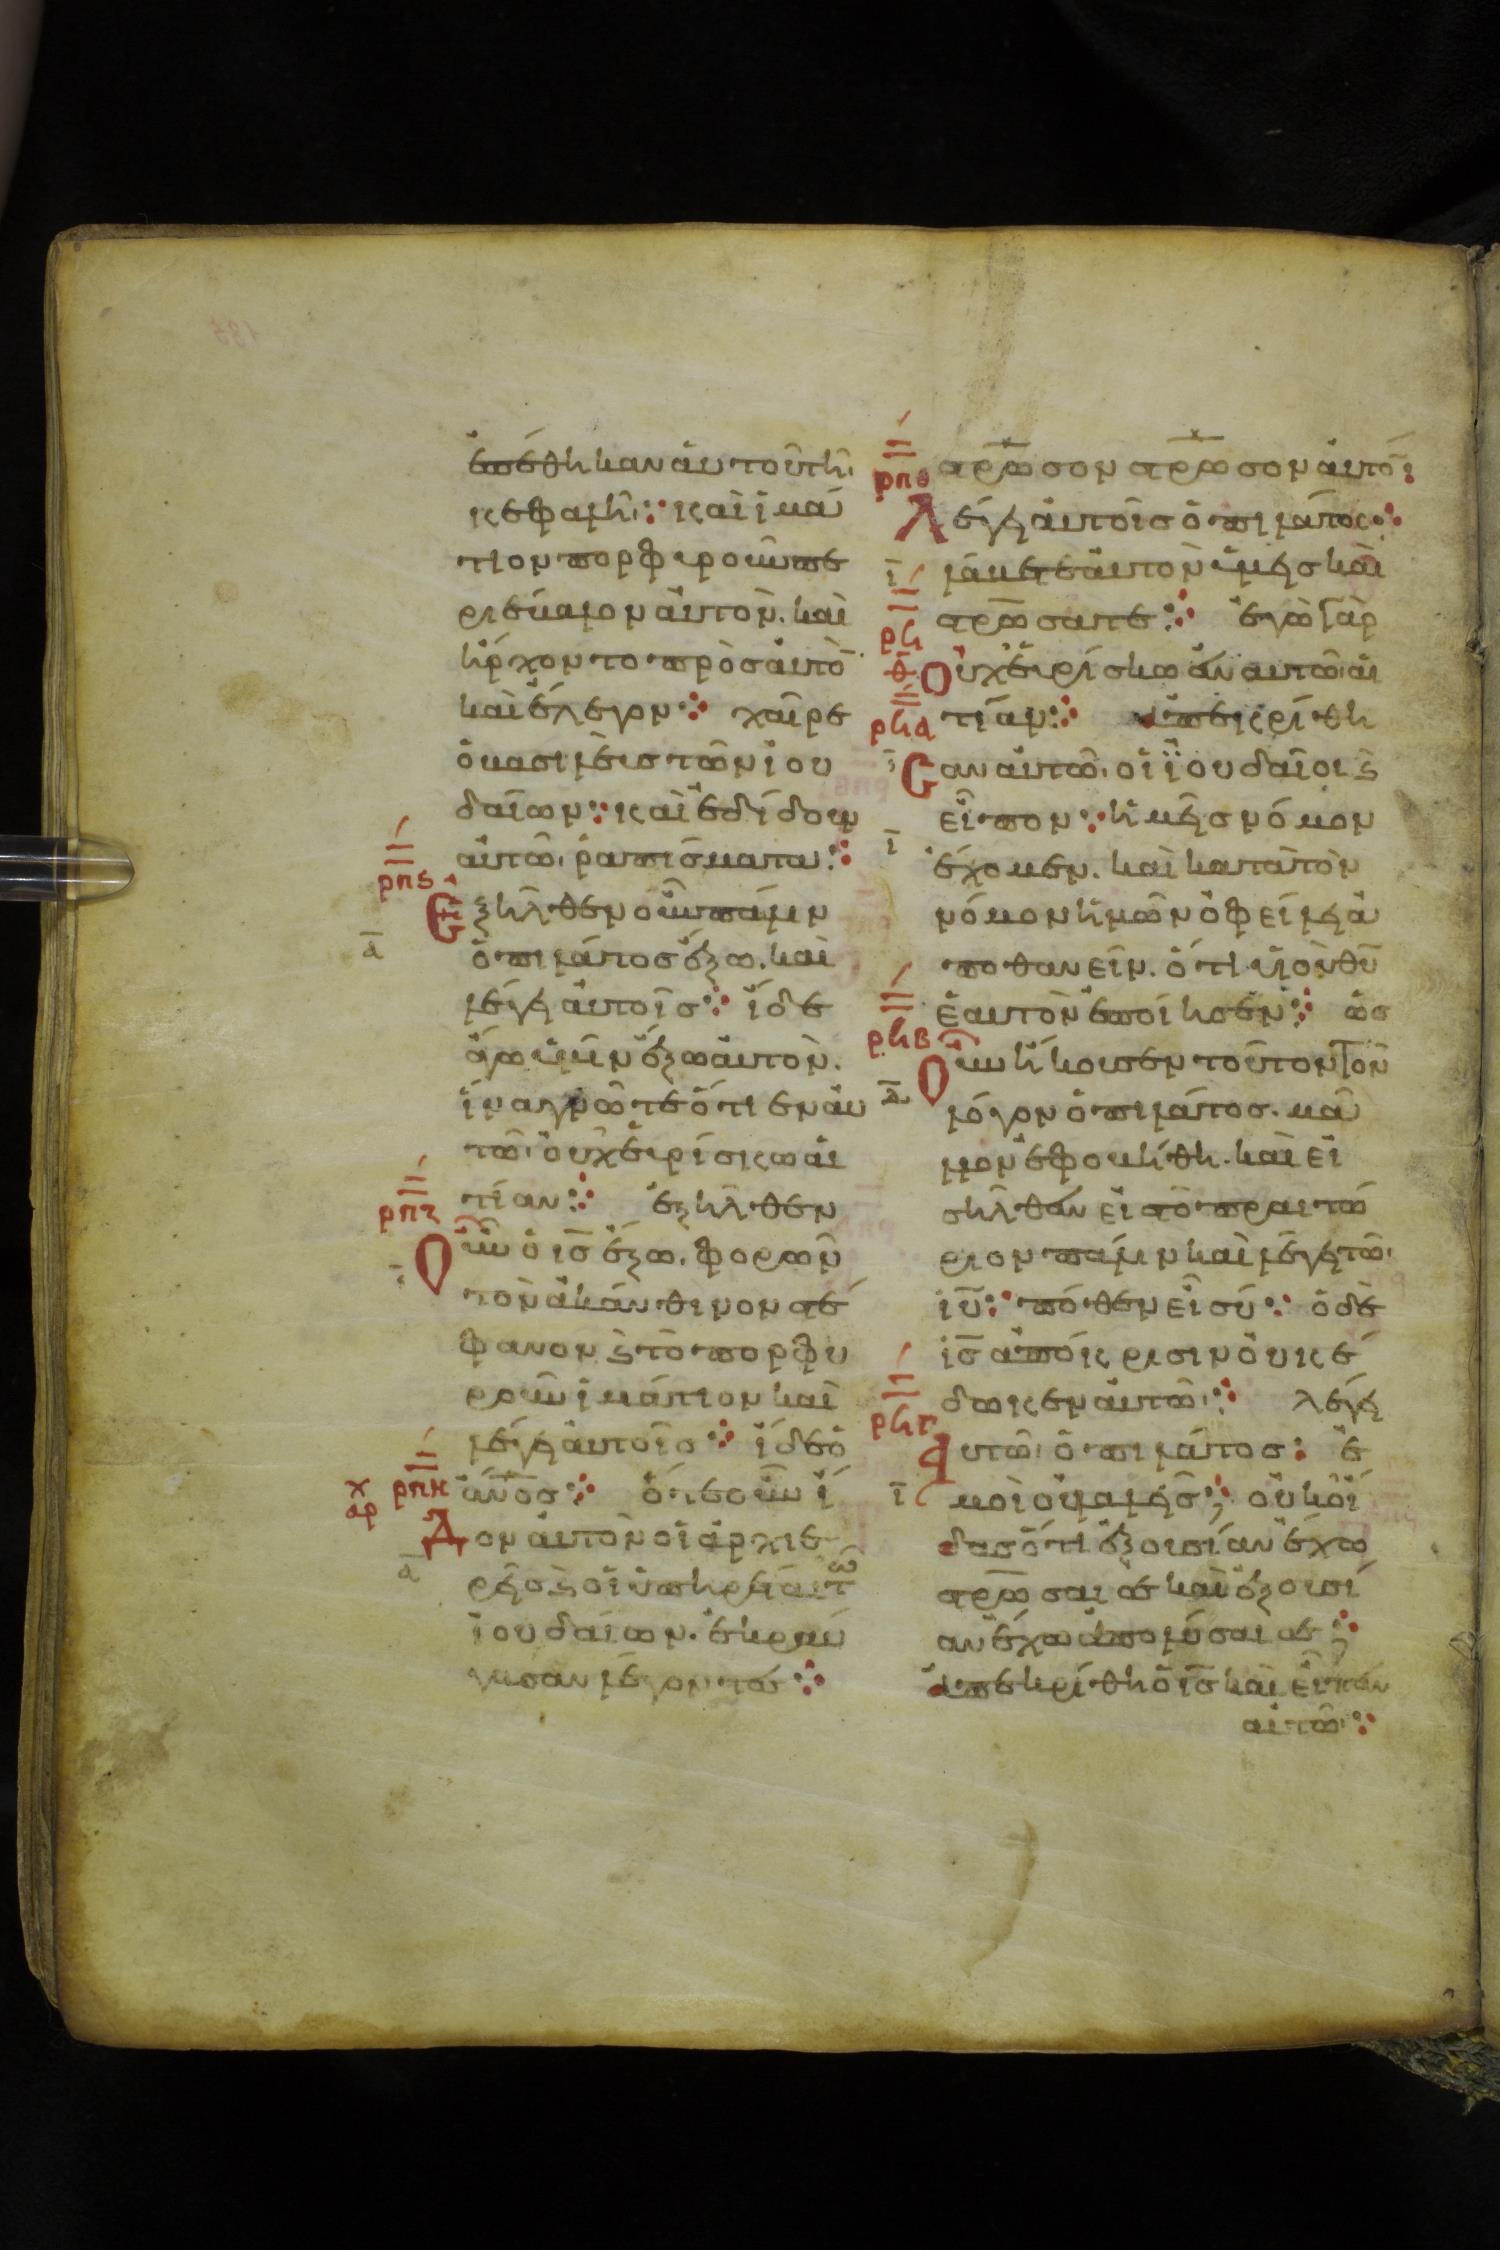 ἐπέθηκαν αὐτοῦ τῆ
κεφαλῆ· καὶ ἱμά
τιον πορφυροῦν πε
ριέβαλον αὐτὸν. καὶ
ἤρχοντο πρὸς αὐτὸ
καὶ ἔλεγον· χαῖρε
ὁ βασιλεὺς τῶν ἰου
δαίων· καὶ ἐδίδουν
αὐτῶ ῥαπίσματα·
ρπς
Ἐξῆλθεν οὖν πάλιν
ὁ πιλάτος ἔξω. καὶ
λέγει αὐτοῖς· ἴδε
ἄγω ὑμῖν ἔξω αὐτὸν.
ἵνα γνῶτε ὅτι ἐν αὐ
τῶ οὐχ εὑρίσκω αἰ
τίαν· ἐξῆλθεν
ρπζ
Οὖν ὁ ις ἔξω. φορῶν
τὸν ἀκάνθινον στέ
φανον ϗ τὸ πορφυ
ροῦν ἱμάτιον καὶ
λέγει αὐτοῖς· ἴδε ὁ
ρπη
ἄνος· ὅτε οὖν ἴ
Δον αὐτὸν οἱ ἀρχιε
ρεῖς ϗ οἱ ὑπηρέται τῶ
ἰουδαίων. ἐκραύ
γασαν λέγοντες·
σρωσον σρωσον αὐτόν
ρπθ
Λέγει αὐτοῖς ὁ πιλάτος·
λάβετε αὐτὸν ὑμεῖς καὶ
σρωσατε· ἐγὼ γὰρ
ρϟ
Οὐχ εὑρίσκω ἐν αὐτῶ αἰ
τίαν· ἀπεκρίθη
ρϟα
Σαν αὐτῶ οἱ ἰουδαῖοι ϗ
εἶπον· ἡμεῖς νόμον
ἔχομεν. καὶ κατὰ τὸν
νόμον ἡμῶν ὀφείλει ἀ
ποθανεῖν. ὅτι υἱὸν θυ
ἑαυτὸν ἐποίησεν· ὡς
ρϟβ
Οὖν ἤκουσεν τοῦτον τὸν
λόγον ὁ πιλάτος. μᾶ
λλον ἐφοβήθη. καὶ εἰ
σῆλθεν εἰς τὸ πραιτώ
ριον πάλιν καὶ λέγει τῶ
ιυ· πόθεν εἶ σύ· ὁ δὲ
ις ἀπόκρισιν οὐκ ἔ
δωκεν αὐτῶ· λέγει
ρϟγ
Αὐτῶ ὁ πιλάτος· ἐ
μοὶ οὐ λαλεῖς; οὐκ οἶ
δας ὅτι ἐξουσίαν ἔχω
σρωσαι σε καὶ ἐξουσί
αν ἔχω ἀπολύσαι σε;
ἀπεκρίθη ὁ ις καὶ εἶπεν
αὐτῶ·